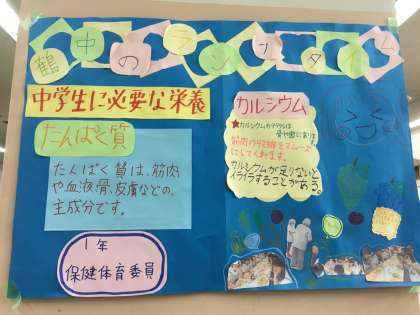 鶴中のランチタイム
中学生に必要な栄養
たんぱく質
たんぱく質は、筋肉
や血液、骨、皮膚などの、
主成分です。
1年
保健体育委員
カルシウム
★カルシウムの99%は
骨や歯にあります
筋肉の収縮をスムーズ
にしてくれます。
カルシウムが足りないと
イライラすることがあろう。